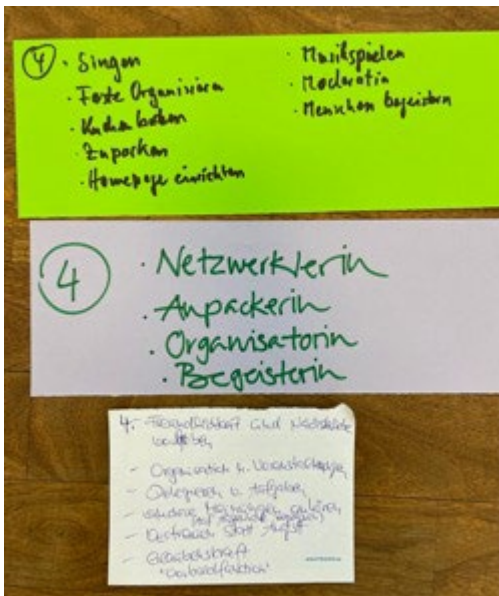 4
· Singen
· Feste Organisieren
· Kuchen backen
· Zupacken
· Homepage einrichten
· Musikspielen
· Moderatin
· Menschen begeistern
4
· Netzwerklerin
· Anpackerin
· Organisatorin
· Begeisterin
4. - Freundlichkeit und Nächstenliebe
- Organisation v. Veranstaltungen
- Delegieren v. Aufgaben
- andere Meinungen anhören
- Vertrauen statt Angst
- Glaubenskraft
"Vorbildfunktion"